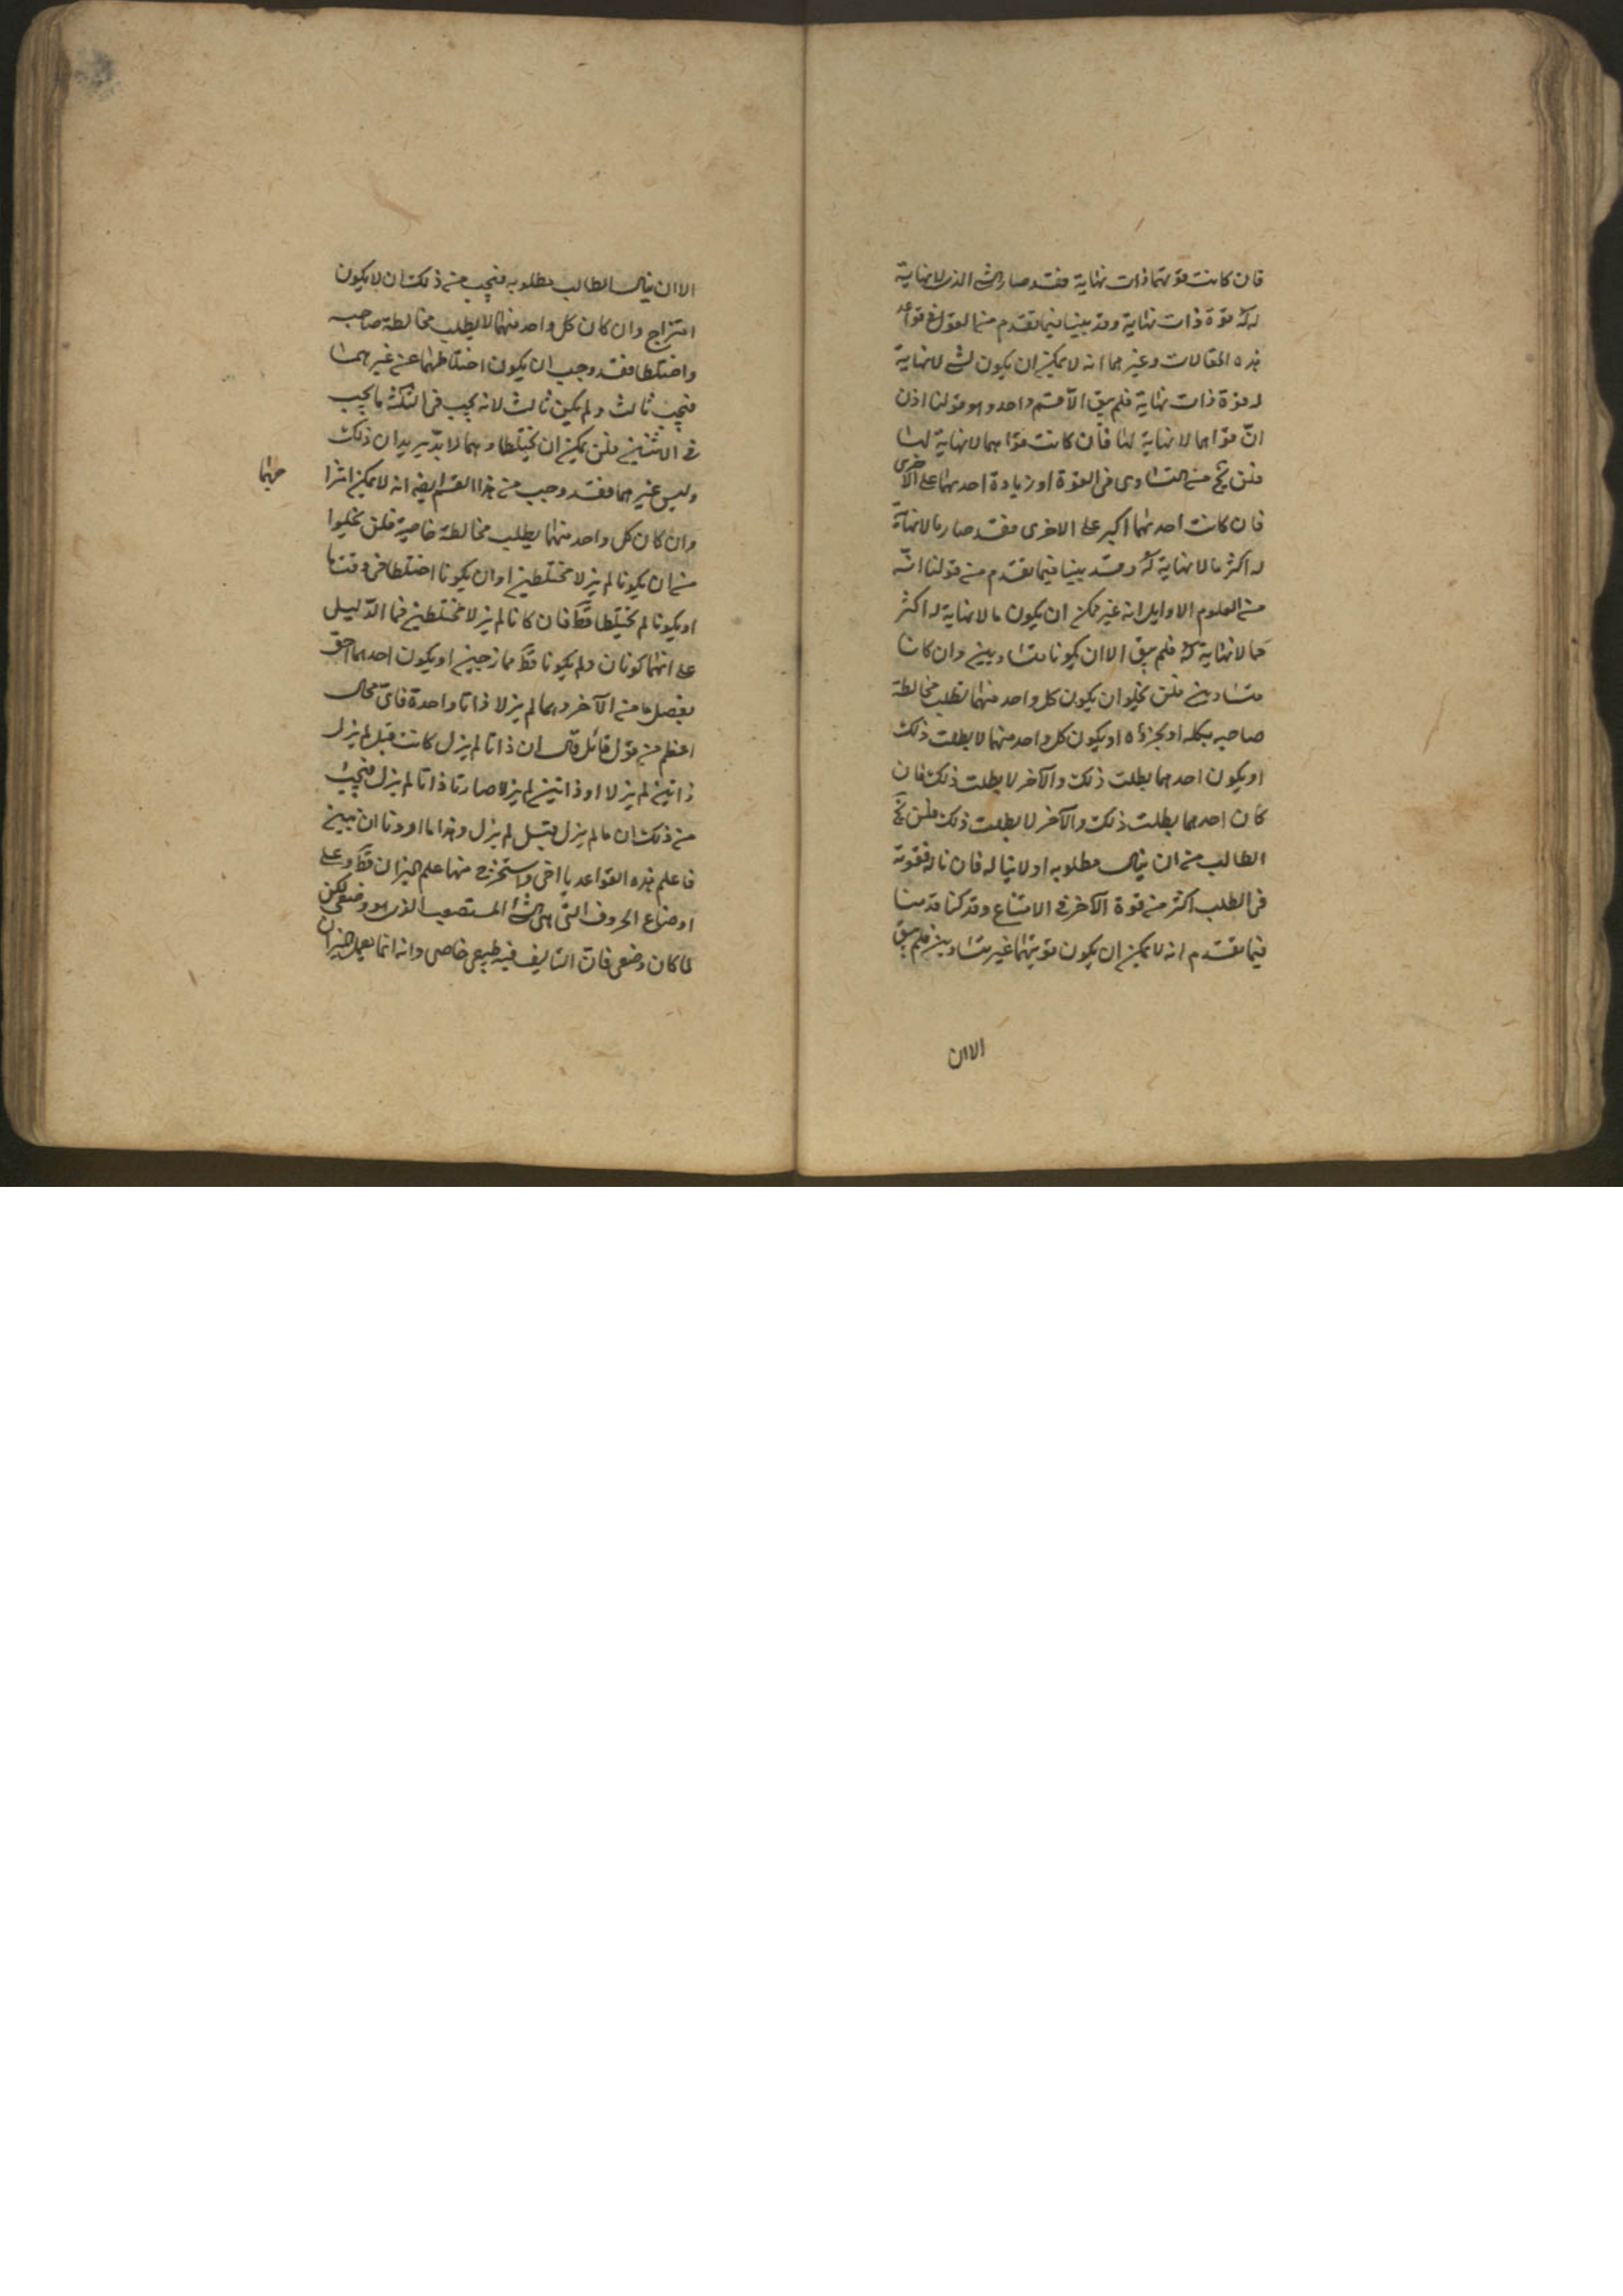 فان كانت قوتهما ذات نهاية فقد صار الشئ الذى لا نهاية
له له قوة ذات نهاية وقد بينا فيما تقدم من القول فى قواعد
هذه المقالات وغيرها انه لا يمكن ان يكون لشئ لا نهاية
له قوة ذات نهاية فلم يبق الا قسم واحد وهو قولنا اذن
انّ قواهما لا نهاية لها فان كانت قواهما لا نهاية لها
فلن يخ من التساوى فى القوة او زيادة احدیهما على الاخرى
فان كانت احدیهما اكبر على الاخرى فقد صار ما لا نهاية
له اكثر ما لا نهاية له وقد بينا فيما تقدم من قولنا انّه
من العلوم الاوايل انه غير ممكن ان يكون ما لا نهاية له اكثر
مما لا نهاية له فلم يبق الا ان يكونا متساويين وان كانا
متساويين فلن يخلو ان يكون كل واحد منهما يطلب مخالطة
صاحبه بكله او بجزؤه او يكون كل واحد منهما لا يطلب ذلك
او يكون احدهما يطلب ذلك والآخر لا يطلب ذلك فان
كان احدهما يطلب ذلك والآخر لا يطلب ذلك فلن يخ
الطالب من ان ينال مطلوبه او لا يناله فان ناله فقوته
فى الطلب اكثر من قوة الآخر فى الامتناع وقد كنا قدمنا
فيما تقدم انه لا يمكن ان يكون قوتيهما غير متساويين فلم يبق
الا ان
الا ان ينال الطالب مطلوبه فيجب من ذلك ان لا يكون
امتزاج وان كان كل واحد منهما لا يطلب مخالطة صاحبه
واختلطا فقد وجب ان يكون اختلاطهما عن غيرهما
فيجب ثالث ولم يكن ثالث لانه يجب فى الثلثة ما يجب
فى الاثنين فلن يمكن ان يختلطا وهما لا بدّ يريدان ذلك
وليس غيرهما فقد وجب من هذا القسم ايضا انه لا يمكن امتزا
جهما
وان كان كل واحد منهما يطلب مخالطة خاصية فلن يخلوا
من ان يكونا لم يزلا مختلطين او ان يكونا اختلطا فى وقت ما
او يكونا لم يختلطا قط فان كانا لم يزلا مختلطين فما الدّليل
على انهما كونان ولم يكونا قط ممازجين او يكون احدهما احق
بفصل ما من الآخر وهما لم يزلا ذاتا واحدة فاىّ محال
اعظم من قول قائل قال ان ذاتا لم يزل كانت قبل لم يزل
ذاتين لم يزلا او ذاتين لم يزلا صارتا ذاتا لم يزل فيجب
من ذلك ان ما لم يزل قبل لم يزل وهذا ما اردنا ان نبين
فاعلم هذه القواعد يا اخى واستخرج منها علم الميزان قط وعلى
اوضاع الحروف التى هى الشئ المستصعب الذى هو وضعى لكن
لما كان وضعى فانّ التأليف فيه طبيعى خاصى وانه انما يعمل الميزان